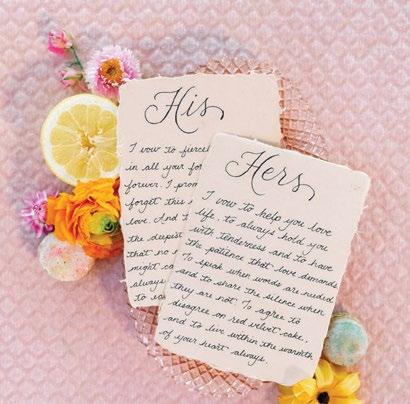 His
I vow to fiercel
in all your for
forever. I prom
forget this
love. And t
the deepest
that no
might ca
always
to ea
Hers
I vow to help you love
life, to always hold you
with tenderness and to have
the patience that love demands
To speak when words are needed
and to share the silence when
they are not. To agree to
disagree on red velvet cake,
and to live within the warmth
of your heart always.